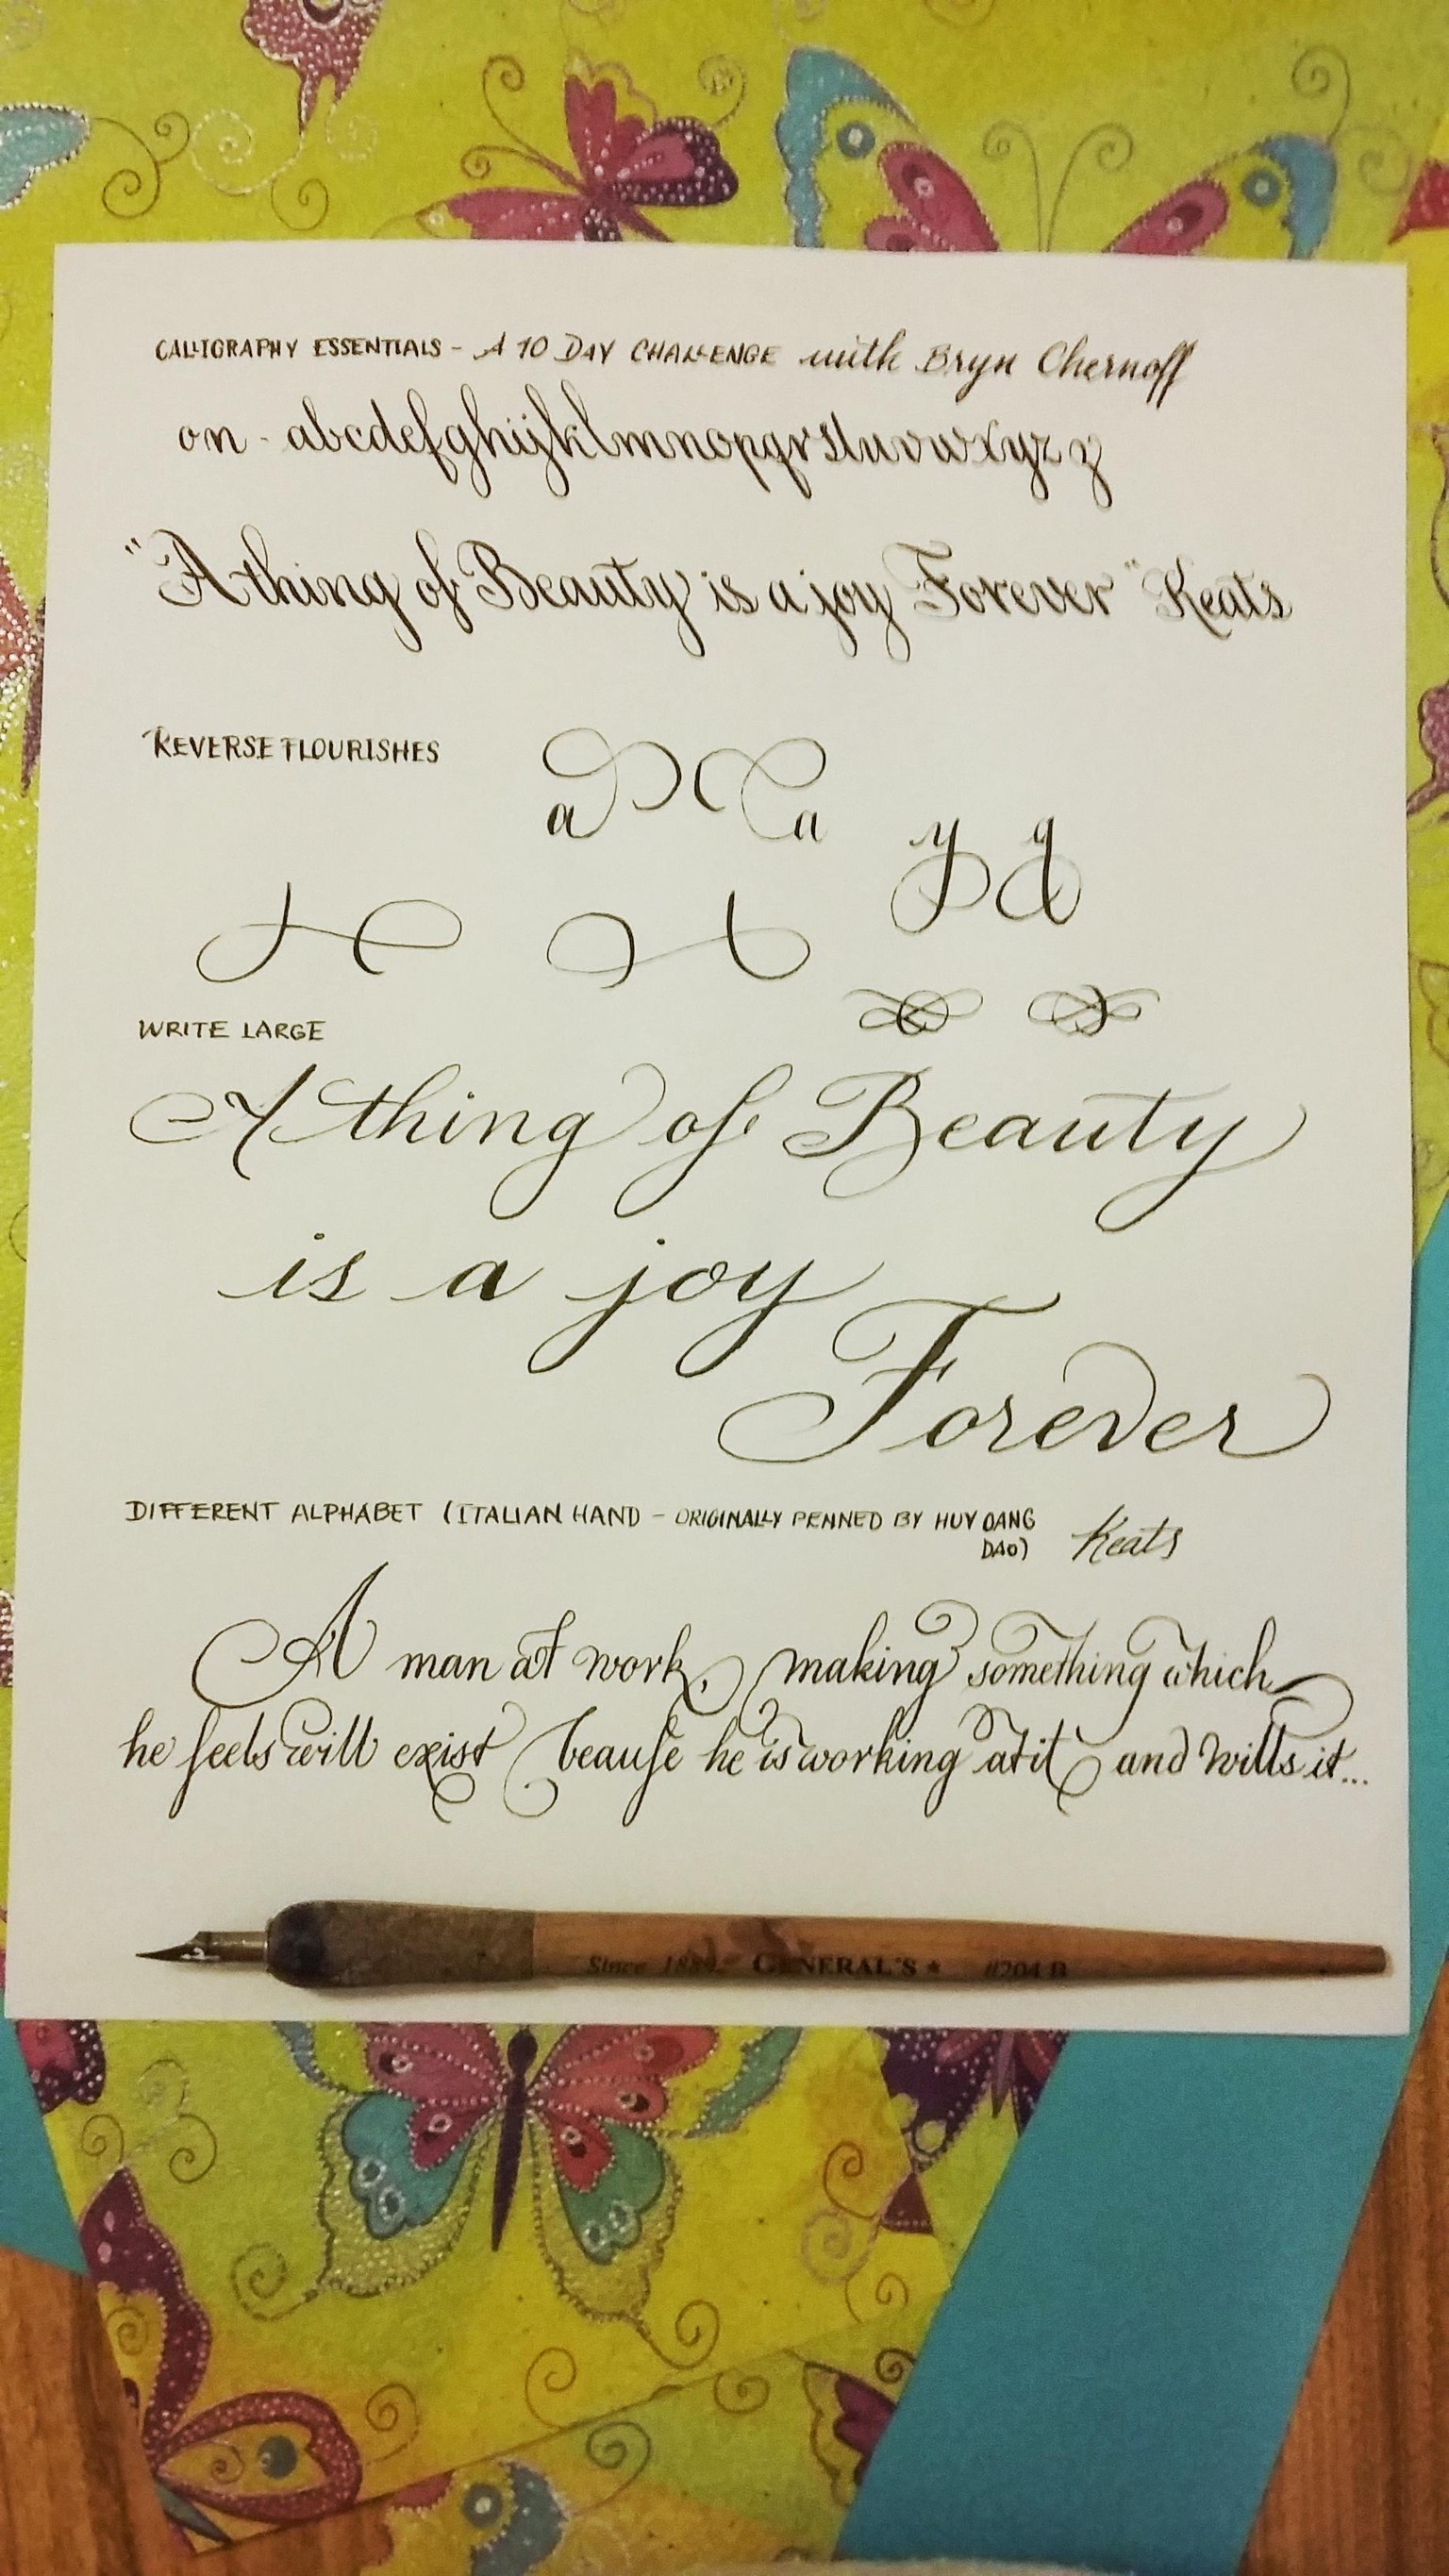 CALLIGRAPHY ESSENTIALS - A 10 DAY CHALLENGE with Bryn Chernoff
on - abcdefghijklmnopqrstuvwxyz z
"A thing of Beauty is a joy Forever" Keats
REVERSE FLOURISHES
a a
y y
WRITE LARGE
A thing of Beauty
is a joy
Forever
DIFFERENT ALPHABET (ITALIAN HAND - ORIGINALLY PENNED BY HUY OANG
DAO)
Keats
A man at work, making something which
he feels will exist beause he is working at it and wills it...
Since 1889 GENERAL'S #204 B